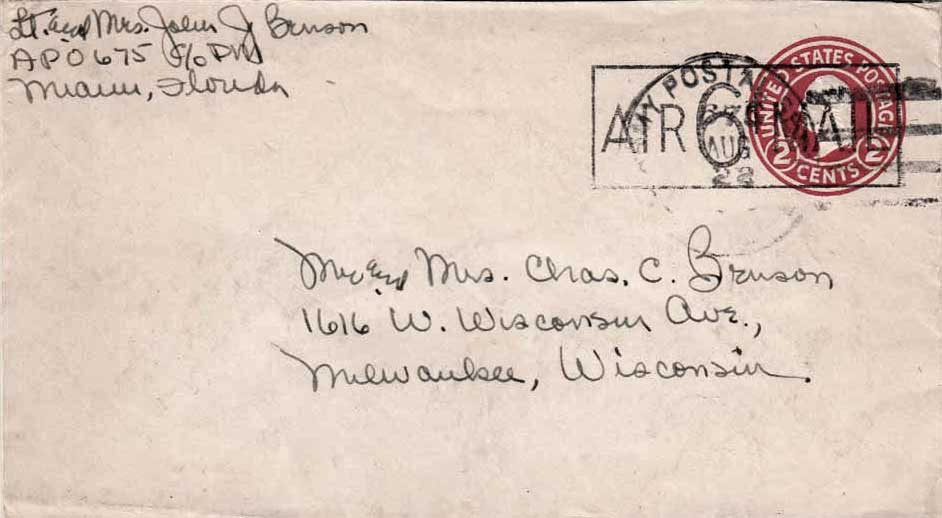 Lt. and Mrs. John J. Bruson
APO 675 c/o PM
Miami, Florida
AIR 6¢ MAIL
AUG
22
UNITED STATES POSTAGE
2 CENTS 2
Mr. and Mrs. Chas. C. Bruson
1616 W. Wisconsin Ave.,
Milwaukee, Wisconsin.